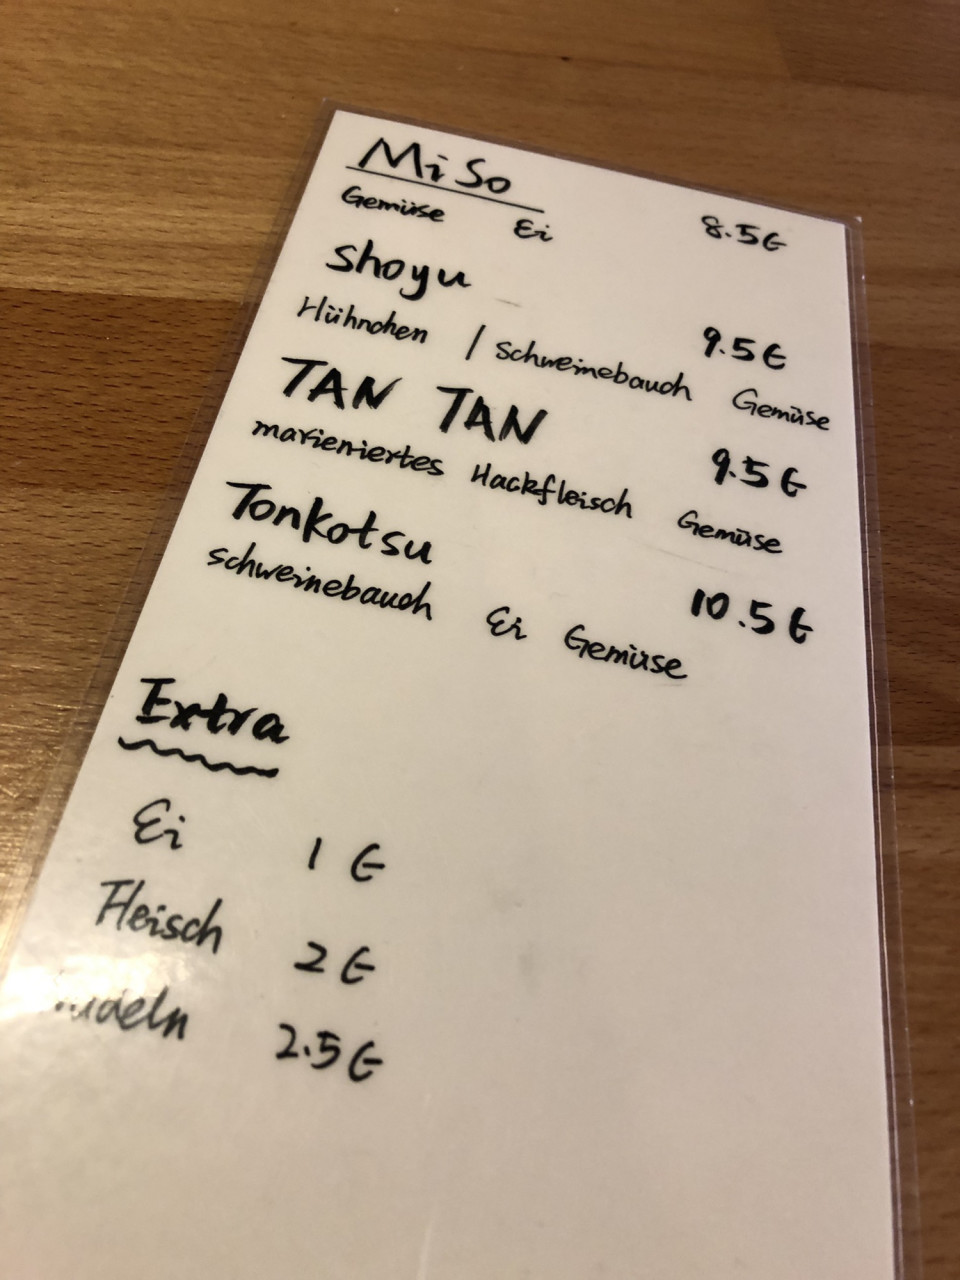 MiSo
Gemüse Ei 8.5€
Shoyu 9.5€
Hühnchen / Schweinebauch Gemüse
TAN TAN 9.5€
marieniertes Hackfleisch Gemüse
Tonkotsu 10.5€
schweinebauch Ei Gemüse
Extra
Ei 1 €
Fleisch 2 €
2.5€